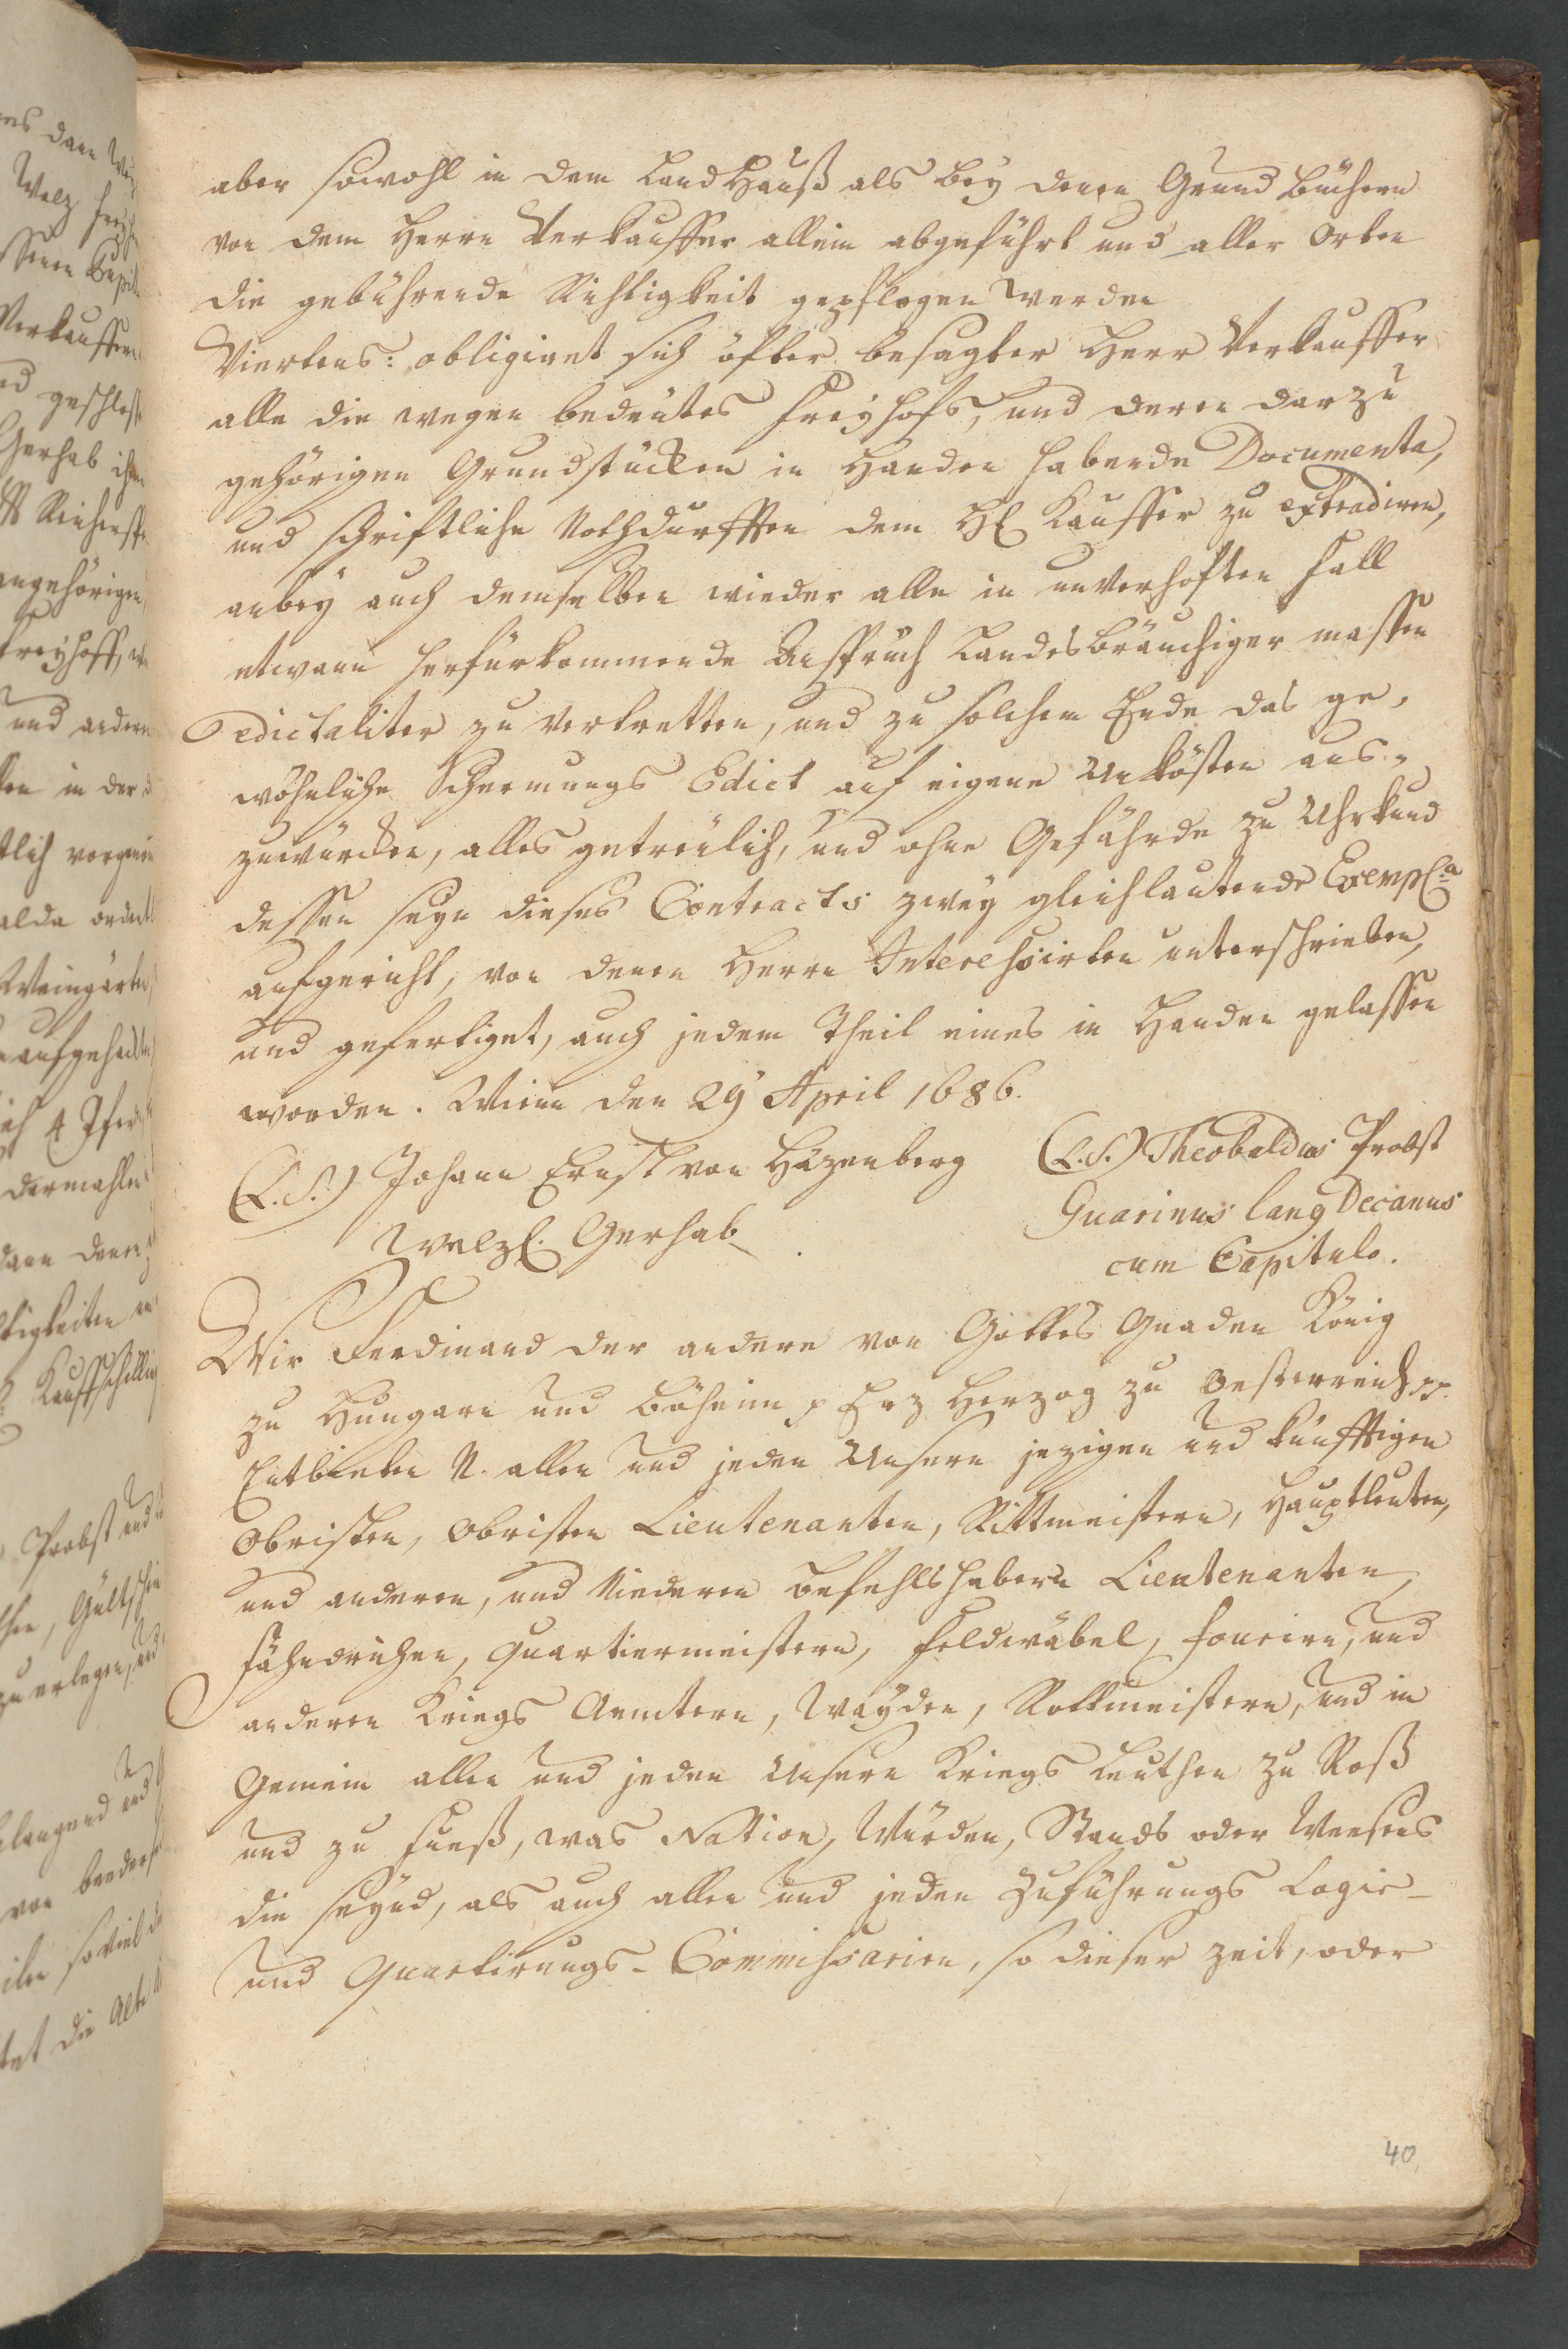 aber sowohl in dem Land Hauß als bey denen Grund Büchern
von dem Herrn Verkauffer allein abgeführt und aller Orten
die gebührende Richtigkeit gepflogen werden
Viertens: obligiret sich öfter besagter Herr Verkauffer
alle die wegen bedeutes Freyhofs, und deren darzu
gehörigen Grundstücken in Handen habende Documenta,
und schriftliche Nothdurfften dem H: Kauffer zu extradiren,
anbey auch demselben wieder alle in unverhoften Fall
etwann herfürkommende Anspruch Landesbräuchiger massen
edictaliter zu vertretten, und zu solchem Ende das ge-
wöhnliche Schermungs Edict auf eigene Unkösten aus-
zuwürcken, alles getreulich, und ohne Gefährde zu Uhrkund
dessen seyn dieses Contracts zwey gleichlautende Exempl:a
aufgericht, von denen Herrn Interessirten unterschrieben,
und gefertiget, auch jedem Theil eines in Handen gelassen
worden. Wienn den 29 April 1686.
(L.S.) Johann Ernst von Häzenberg (L.S.) Theobaldus Probst
Welzl. Gerhab. Guarinus Lang Decanus
cum Capitulo.
Wir Ferdinand der andere von Gottes Gnaden König
zu Hungarn und Böheim p Erz Herzog zu Oesterreich pp.
Entbieten N. allen und jeden Unsern jezigen und künfftigen
Obristen, Obristen Lieutenanten, Rittmeistern, Hauptleuten,
und anderen, und Niederen Befehlshabern Lieutenanten,
Fähndrichen, Quartiermeistern, Feldwäbel, Fourirn, und
anderen Kriegs Aemtern, Wayden, Rottmeistern, und in
Gemein allen und jeden Unsern Kriegs Leuthen zu Roß
und zu Fueß, was Nation, Würden, Stands oder Weesens
die seynd, als auch allen und jeden Zuführungs Logir-
und Quartirungs-Commissarien, so dieser Zeit, oder
40